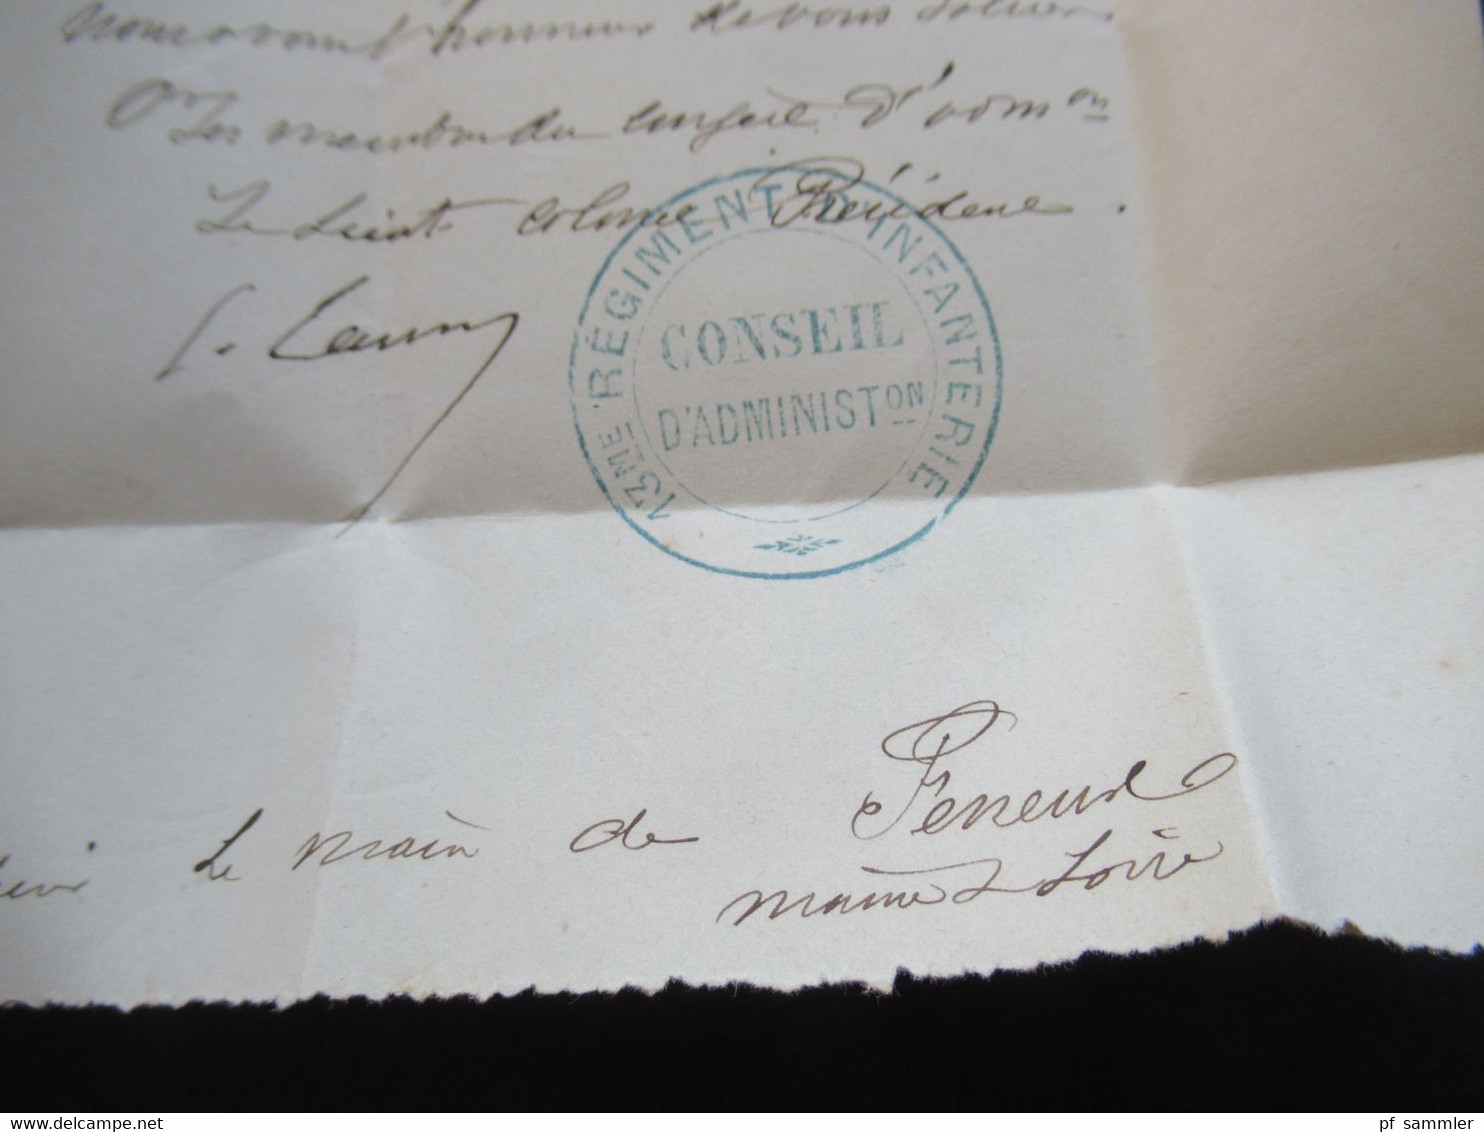 nous avons l'honneur de vous saluer
Les membres du conseil d'adm on
Le Lieut Colonel Président.
13ME RÉGIMENT D'INFANTERIE
CONSEIL
D'ADMINISTON
Le Maire de Feneu
Maine & Loire
pf_sammler
www.delcampe.net